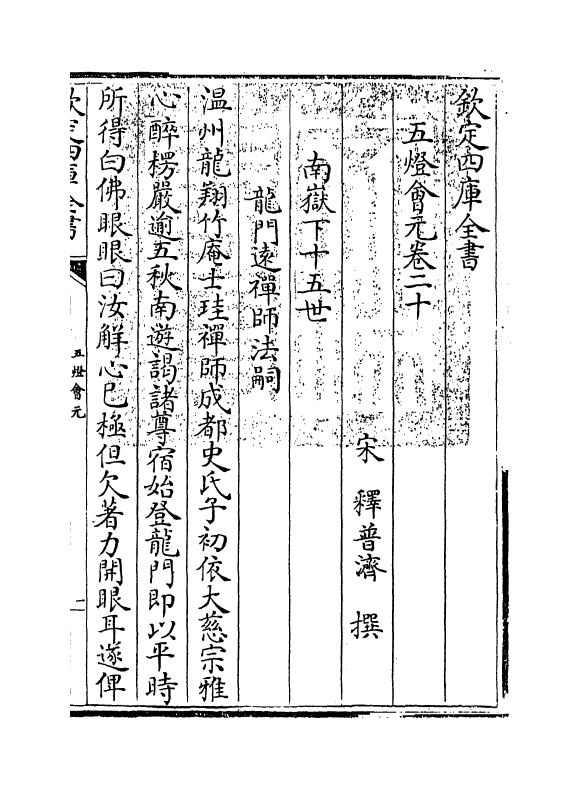 欽定四庫全書
五燈會元卷二十
宋 釋普濟 撰
南嶽下十五世
龍門遠禪師法嗣
温州龍翔竹庵士珪禪師成都史氏子初依大慈宗雅
心醉楞嚴逾五秋南遊謁諸尊宿始登龍門即以平時
所得白佛眼眼曰汝解心已極但欠著力開眼耳遂俾
欽定四庫全書
五燈會元